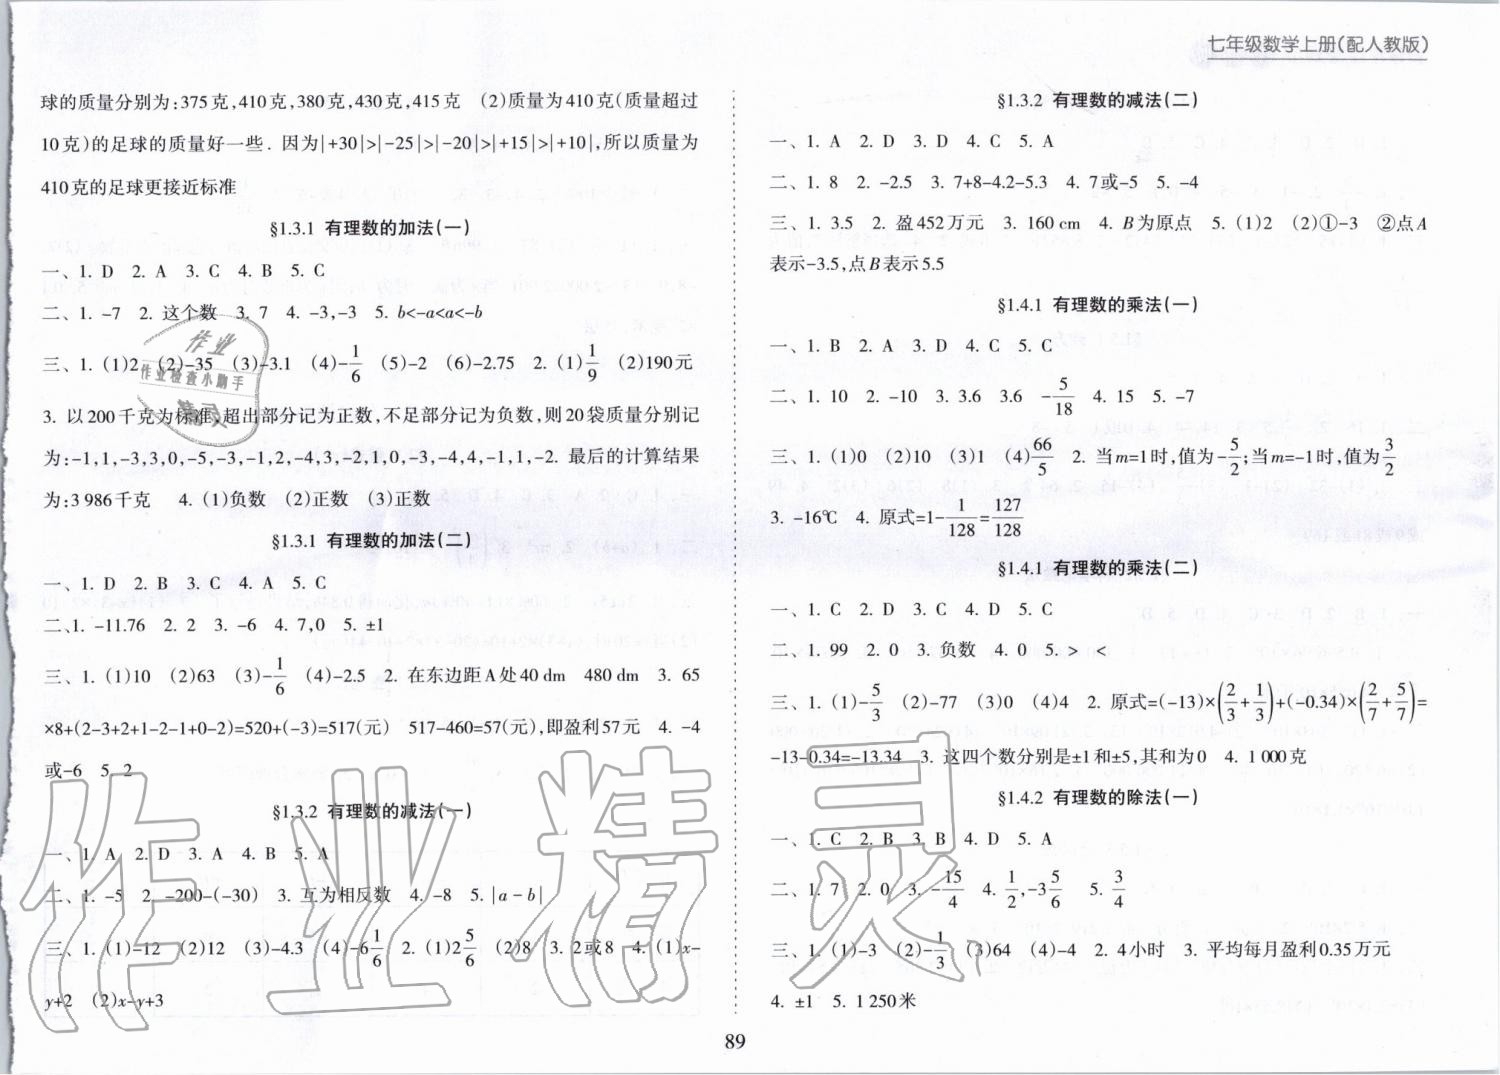 七年级数学上册(配人教版)
球的质量分别为:375克,410克,380克,430克,415克 (2)质量为410克(质量超过
10克)的足球的质量好一些. 因为|+30|>|-25|>|-20|>|+15|>|+10|,所以质量为
410克的足球更接近标准
§1.3.1 有理数的加法(一)
一、1. D 2. A 3. C 4. B 5. C
二、1. -7 2. 这个数 3. 7 4. -3,-3 5. b<-a<a<-b
三、1. (1)2 (2)-35 (3)-3.1 (4)-1/6 (5)-2 (6)-2.75 2. (1)1/9 (2)190元
3. 以200千克为标准,超出部分记为正数,不足部分记为负数,则20袋质量分别记
为:-1,1,-3,3,0,-5,-3,-1,2,-4,3,-2,1,0,-3,-4,4,-1,1,-2. 最后的计算结果
为:3 986千克 4. (1)负数 (2)正数 (3)正数
§1.3.1 有理数的加法(二)
一、1. D 2. B 3. C 4. A 5. C
二、1. -11.76 2. 2 3. -6 4. 7,0 5. ±1
三、1. (1)10 (2)63 (3)-1/6 (4)-2.5 2. 在东边距A处40 dm 480 dm 3. 65
×8+(2-3+2+1-2-1+0-2)=520+(-3)=517(元) 517-460=57(元),即盈利57元 4. -4
或-6 5. 2
§1.3.2 有理数的减法(一)
一、1. A 2. D 3. A 4. B 5. A
二、1. -5 2. -200-(-30) 3. 互为相反数 4. -8 5. |a-b|
三、1. (1)-12 (2)12 (3)-4.3 (4)-6 1/6 2. (1)2 5/6 (2)8 3. 2或8 4. (1)x-
y+2 (2)x-y+3
§1.3.2 有理数的减法(二)
一、1. A 2. D 3. D 4. C 5. A
二、1. 8 2. -2.5 3. 7+8-4.2-5.3 4. 7或-5 5. -4
三、1. 3.5 2. 盈452万元 3. 160 cm 4. B为原点 5. (1)2 (2)①-3 ②点A
表示-3.5,点B表示5.5
§1.4.1 有理数的乘法(一)
一、1. B 2. A 3. D 4. C 5. C
二、1. 10 2. -10 3. 3.6 3.6 -5/18 4. 15 5. -7
三、1. (1)0 (2)10 (3)1 (4)66/5 2. 当m=1时,值为-5/2;当m=-1时,值为3/2
3. -16℃ 4. 原式=1-1/128=127/128
§1.4.1 有理数的乘法(二)
一、1. C 2. D 3. C 4. D 5. C
二、1. 99 2. 0 3. 负数 4. 0 5. > <
三、1. (1)-5/3 (2)-77 (3)0 (4)4 2. 原式=(-13)×(2/3+1/3)+(-0.34)×(2/7+5/7)=
-13-0.34=-13.34 3. 这四个数分别是±1和±5,其和为0 4. 1 000克
§1.4.2 有理数的除法(一)
一、1. C 2. B 3. B 4. D 5. A
二、1. 7 2. 0 3. -15/4 4. 1/2,-3 5/6 5. 3/4
三、1. (1)-3 (2)-1/3 (3)64 (4)-4 2. 4小时 3. 平均每月盈利0.35万元
4. ±1 5. 1 250米
89
作业
作业检查小助手
精灵
作业精灵